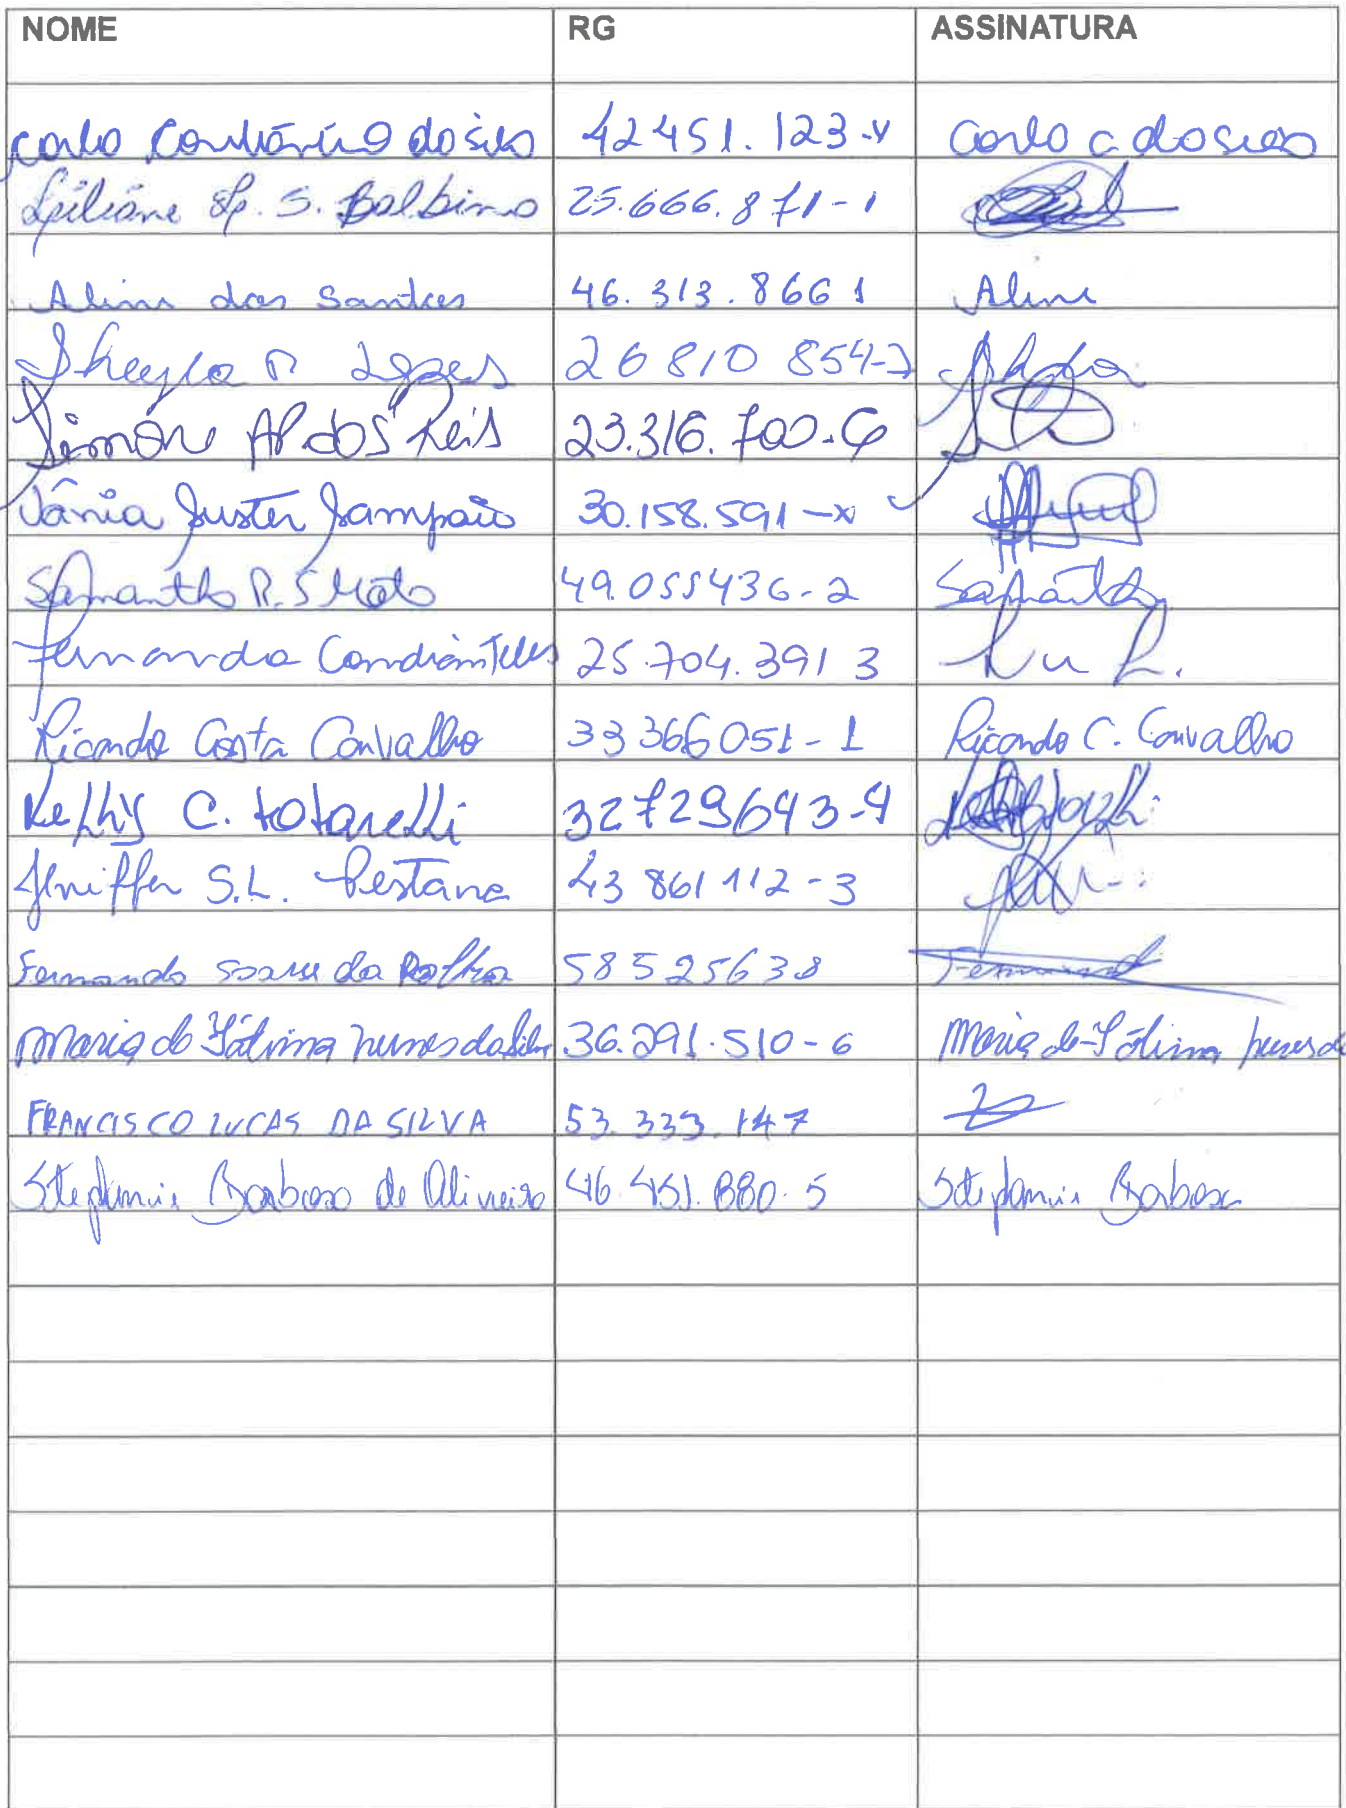 NOME RG ASSINATURA
42451.123-x
Liliane Ap. S. Balbino 25.666.871-1
Aline dos Santos 46.313.866 1 Aline
Sheyla R Lopes 26 810 854-
Simone Ap dos Reis 23.316.700-6
Vânia Suster Sampaio 30.158.591-x
Samantha R. S Mota 49.055436-2 Samantha
Fernanda Teles 25.704.391 3
Ricardo Costa Carvalho 33 366 051-1 Ricardo C. Carvalho
Kelly C. totarelli 32729643-4
Jeniffer S.L. Pestana 43 861 112-3
Fernando Soares da Rocha 58525638
Maria de Fátima nunes da Silva 36.291.510-6 Maria de Fátima nunes da
FRANCISCO LUCAS DA SILVA 53.333.147
Stephanie Barbosa de Oliveira 46.451.880-5 Stephanie Barbosa